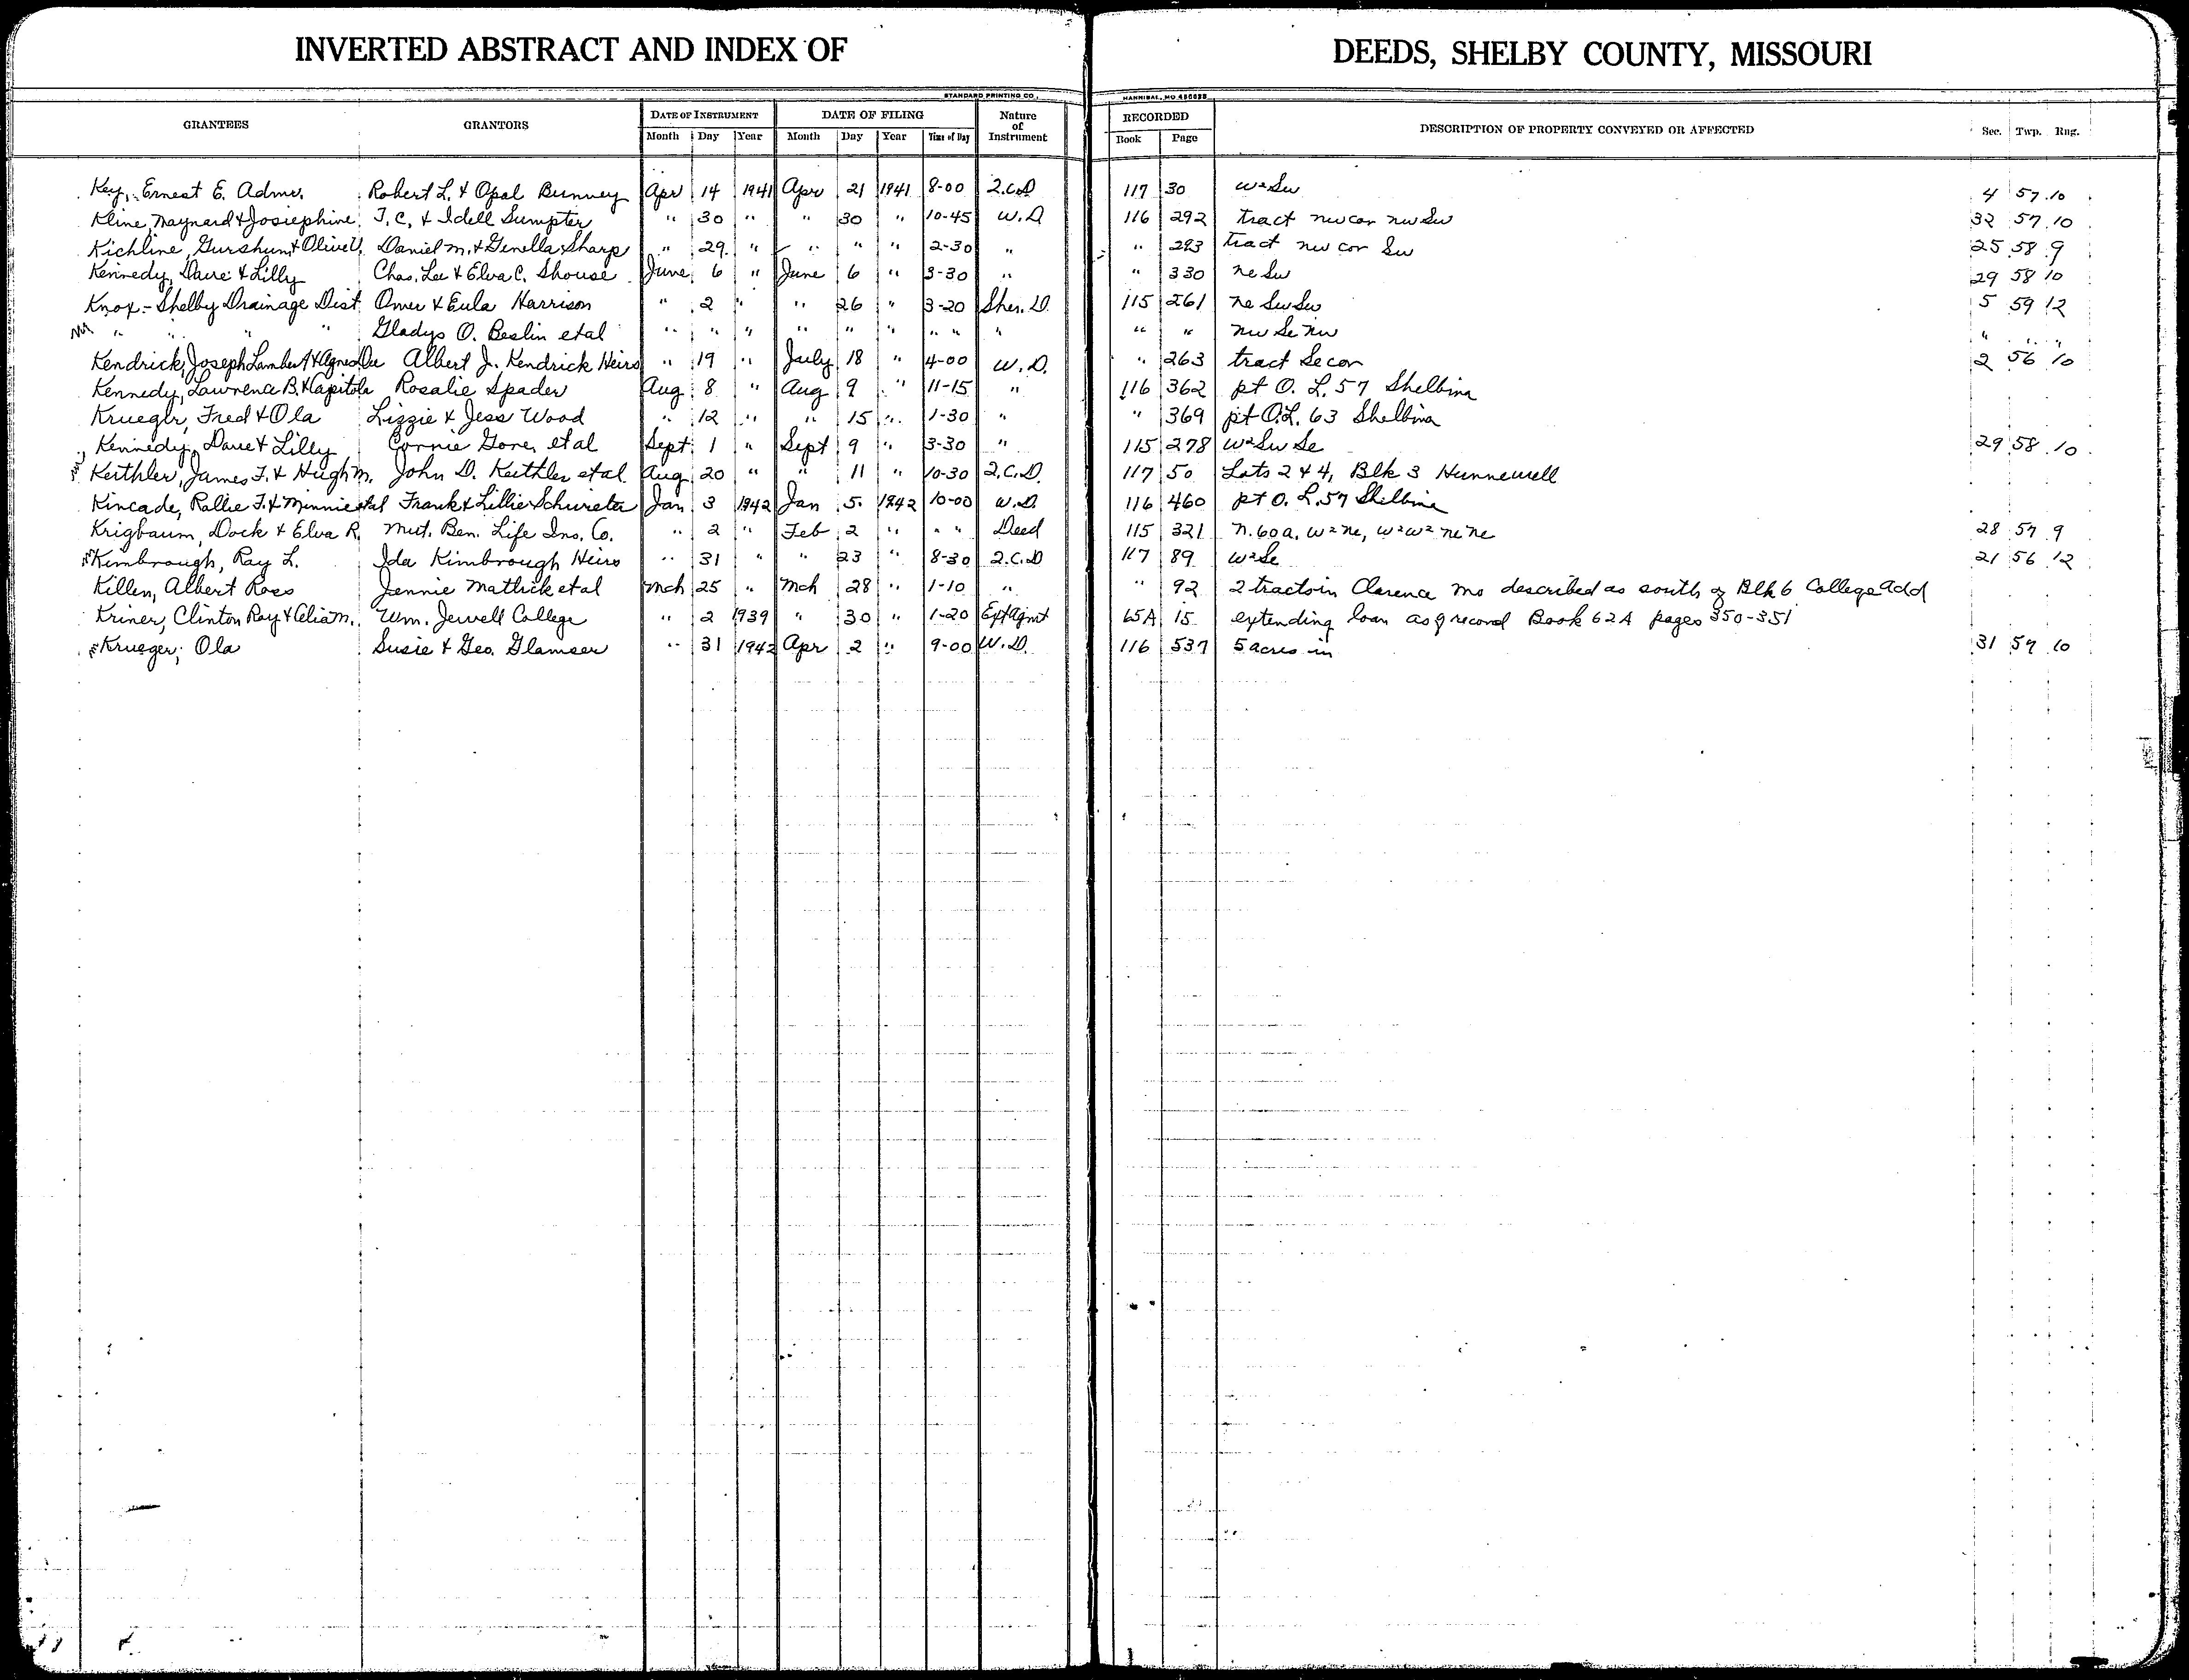 INVERTED ABSTRACT AND INDEX OF DEEDS, SHELBY COUNTY, MISSOURI
STANDARD PRINTING CO., HANNIBAL, MO
GRANTEES GRANTORS DATE OF INSTRUMENT DATE OF FILING Nature of Instrument RECORDED DESCRIPTION OF PROPERTY CONVEYED OR AFFECTED Sec. Twp. Rng.
Month Day Year Month Day Year Time of Day Book Page
Key, Ernest E. Admr. Robert L. & Opal Bunney Apr 14 1941 Apr 21 1941 8-00 Q.C.D 117 30 W² Sw 4 57 10
Kline, Maynard & Josiephine T. C. & Idell Sumpter " 30 " " 30 " 10-45 W.D 116 292 tract nw cor nw Sw 32 57 10
Kichline, Gurshum & Olive V. Daniel M. & Genella Sharp " 29 " " " " 2-30 " " 293 tract nw cor Sw 25 58 9
Kennedy, Dave & Lilly Chas. Lee & Elva C. Shouse June 6 " June 6 " 3-30 " " 330 ne Sw 29 58 10
Knox-Shelby Drainage Dist Omer & Eula Harrison " 2 " " 26 " 3-20 Sher. D. 115 261 ne Sw Sw 5 59 12
" " " " Gladys O. Beslin etal " " " " " " " " " " " nw Se nw " " "
Kendrick, Joseph Lambert & Agnes Dee Albert J. Kendrick Heirs " 19 " July 18 " 4-00 W.D. " 263 tract Se cor 2 56 10
Kennedy, Lawrence B. & Capitola Rosalie Spader Aug 8 " Aug 9 " 11-15 " 116 362 pt O. L. 57 Shelbina
Krueger, Fred & Ola Lizzie & Jess Wood " 12 " " 15 " 1-30 " " 369 pt O.L. 63 Shelbina
Kennedy, Dave & Lilly Connie Gones etal Sept 1 " Sept 9 " 3-30 " 115 278 W² Sw Se 29 58 10
Keithler, James F. & Hugh M. John D. Keithler etal Aug 20 " " 11 " 10-30 Q.C.D. 117 50 Lots 2 & 4, Blk 3 Hunnewell
Kincade, Rallie F. & Minnie etal Frank & Lillie Schwieter Jan 3 1942 Jan 5 1942 10-00 W.D. 116 460 pt O. L. 57 Shelbina
Krigbaum, Dock & Elva R. Mut. Ben. Life Ins. Co. " 2 " Feb 2 " " " Deed 115 321 N. 60 a. W² ne, W² W² ne ne 28 57 9
Kimbrough, Ray L. Ida Kimbrough Heirs " 31 " " 23 " 8-30 Q.C.D 117 89 W² Se 21 56 12
Killen, Albert Ross Jennie Matlick etal Mch 25 " Mch 28 " 1-10 " " 92 2 tracts in Clarence Mo described as south of Blk 6 College Add
Kriner, Clinton Ray & Celia M. Wm. Jewell College " 2 1939 " 30 " 1-20 Ext Agmt 65A 15 extending loan as of record Book 62A pages 350-351
Krueger, Ola Susie & Geo. Glamser " 31 1942 Apr 2 " 9-00 W.D. 116 537 5 acres in 31 57 10